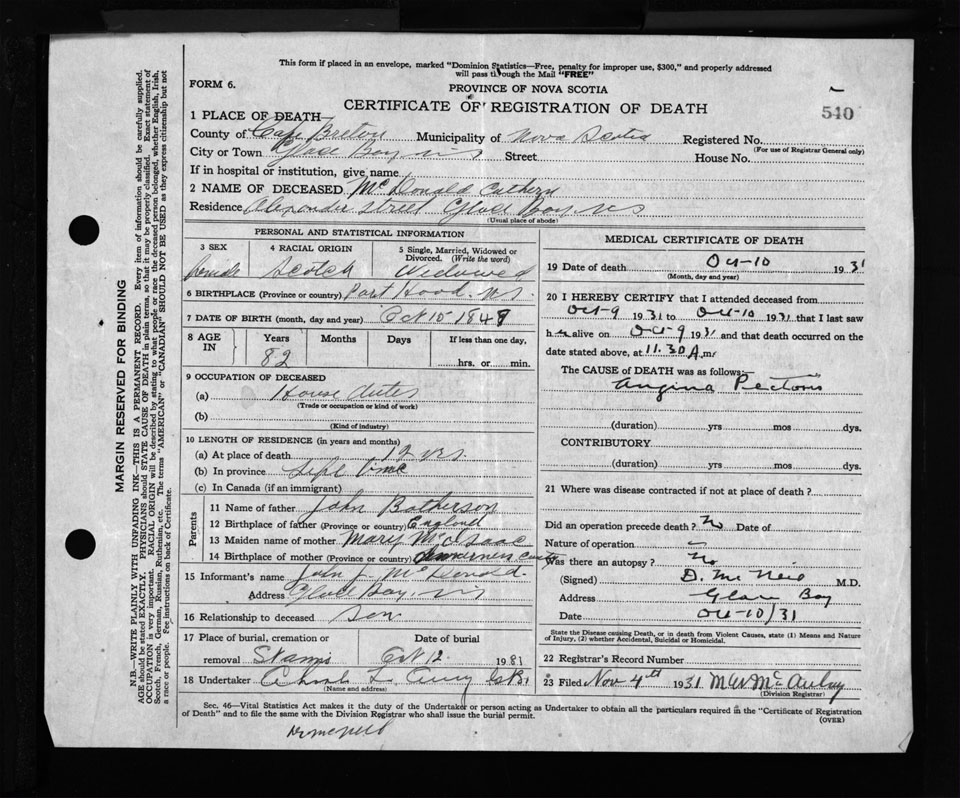 This form if placed in an envelope, marked "Dominion Statistics—Free, penalty for improper use, $300," and properly addressed
will pass through the Mail "FREE"
FORM 6.
PROVINCE OF NOVA SCOTIA
CERTIFICATE OF REGISTRATION OF DEATH
540
1 PLACE OF DEATH
County of Cape Breton Municipality of Nova Scotia Registered No.
(For use of Registrar General only)
City or Town Glace Bay NS Street House No.
If in hospital or institution, give name
2 NAME OF DECEASED McDonald Cathern
Residence Alexander Street Glace Bay NS
(Usual place of abode)
PERSONAL AND STATISTICAL INFORMATION
3 SEX 4 RACIAL ORIGIN 5 Single, Married, Widowed or Divorced. (Write the word)
female Scotch Widowed
6 BIRTHPLACE (Province or country) Port Hood. N.S.
7 DATE OF BIRTH (month, day and year) Oct 10 - 1849
8 AGE IN Years Months Days If less than one day,
82 hrs. or min.
9 OCCUPATION OF DECEASED
(a) House Duties
(Trade or occupation or kind of work)
(b)
(Kind of industry)
10 LENGTH OF RESIDENCE (in years and months)
(a) At place of death 12 yrs.
(b) In province Life time
(c) In Canada (if an immigrant)
Parents
11 Name of father John Batherson
12 Birthplace of father (Province or country) England
13 Maiden name of mother Mary McIsaac
14 Birthplace of mother (Province or country) Inverness County
15 Informant's name John J. McDonald.
Address Glace Bay, NS
16 Relationship to deceased son
17 Place of burial, cremation or removal Date of burial
Oct 12 1931
18 Undertaker Curry G.B.
(Name and address)
MEDICAL CERTIFICATE OF DEATH
19 Date of death Oct-10 1931
(Month, day and year)
20 I HEREBY CERTIFY that I attended deceased from
Oct-9 1931 to Oct-10 1931 that I last saw
her alive on Oct-9 1931 and that death occurred on the
date stated above, at 11.30 A.m.
The CAUSE of DEATH was as follows:—
Angina Pectoris
(duration) yrs mos dys.
CONTRIBUTORY
(duration) yrs mos dys.
21 Where was disease contracted if not at place of death?
Did an operation precede death? No Date of
Nature of operation —
Was there an autopsy? No
(Signed) D. McNeil M.D.
Address Glace Bay
Date Oct-10/31
State the Disease causing Death, or in death from Violent Causes, state (1) Means and Nature
of Injury, (2) whether Accidental, Suicidal or Homicidal.
22 Registrar's Record Number
23 Filed Nov 4th 1931 M W McAulay
(Division Registrar)
Sec. 46—Vital Statistics Act makes it the duty of the Undertaker or person acting as Undertaker to obtain all the particulars required in the "Certificate of Registration
of Death" and to file the same with the Division Registrar who shall issue the burial permit.
(OVER)
Dr McNeil
MARGIN RESERVED FOR BINDING
N.B.—WRITE PLAINLY WITH UNFADING INK—THIS IS A PERMANENT RECORD. Every item of information should be carefully supplied.
AGE should be stated EXACTLY. PHYSICIANS should STATE CAUSE OF DEATH in plain terms, so that it may be properly classified. Exact statement of
OCCUPATION is very important. RACIAL ORIGIN will be described by stating to what people or race the deceased person belonged, whether English, Irish,
Scotch, French, German, Russian, Ruthenian, etc. The terms "AMERICAN" or "CANADIAN" SHOULD NOT BE USED as they express citizenship but not
a race or people. See instructions on back of Certificate.